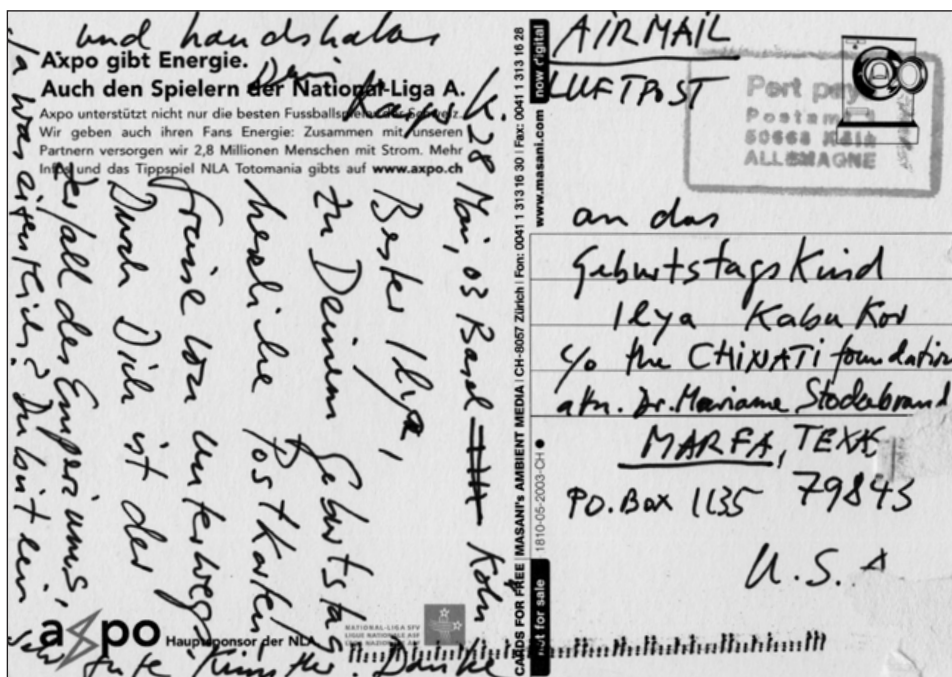 und handshakes
Dein
Kasper K.
Axpo gibt Energie.
Auch den Spielern der National-Liga A.
Axpo unterstützt nicht nur die besten Fussballspieler der Schweiz.
Wir geben auch ihren Fans Energie: Zusammen mit unseren
Partnern versorgen wir 2,8 Millionen Menschen mit Strom. Mehr
Infos und das Tippspiel NLA Totomania gibts auf www.axpo.ch
28 Mai, 03 Basel Köln
Bester Ilya,
zu Deinem Geburtstag
herzliche Postkarten
Grüsse von unterwegs
Durch Dich ist der
Zerfall des Imperiums,
ja was eigentlich? Du bist ein
sehr guter Künstler. Danke
axpo Hauptsponsor der NLA
NATIONAL-LIGA SFV
LIGUE NATIONALE ASF
CARDS FOR FREE | MASANI's AMBIENT MEDIA | CH-8057 Zürich | Fon: 0041 1 313 16 30 | Fax: 0041 1 313 16 28
not for sale
1810-05-2003-CH
www.masani.com
now digital
AIRMAIL
LUFTPOST
Port payé
50668 Köln
ALLEMAGNE
an das
Geburtstagskind
Ilya Kabakov
c/o the CHINATI foundation
attn. Dr. Marianne Stockebrand
MARFA, TEXAS
P.O. Box 1135 79843
U.S.A